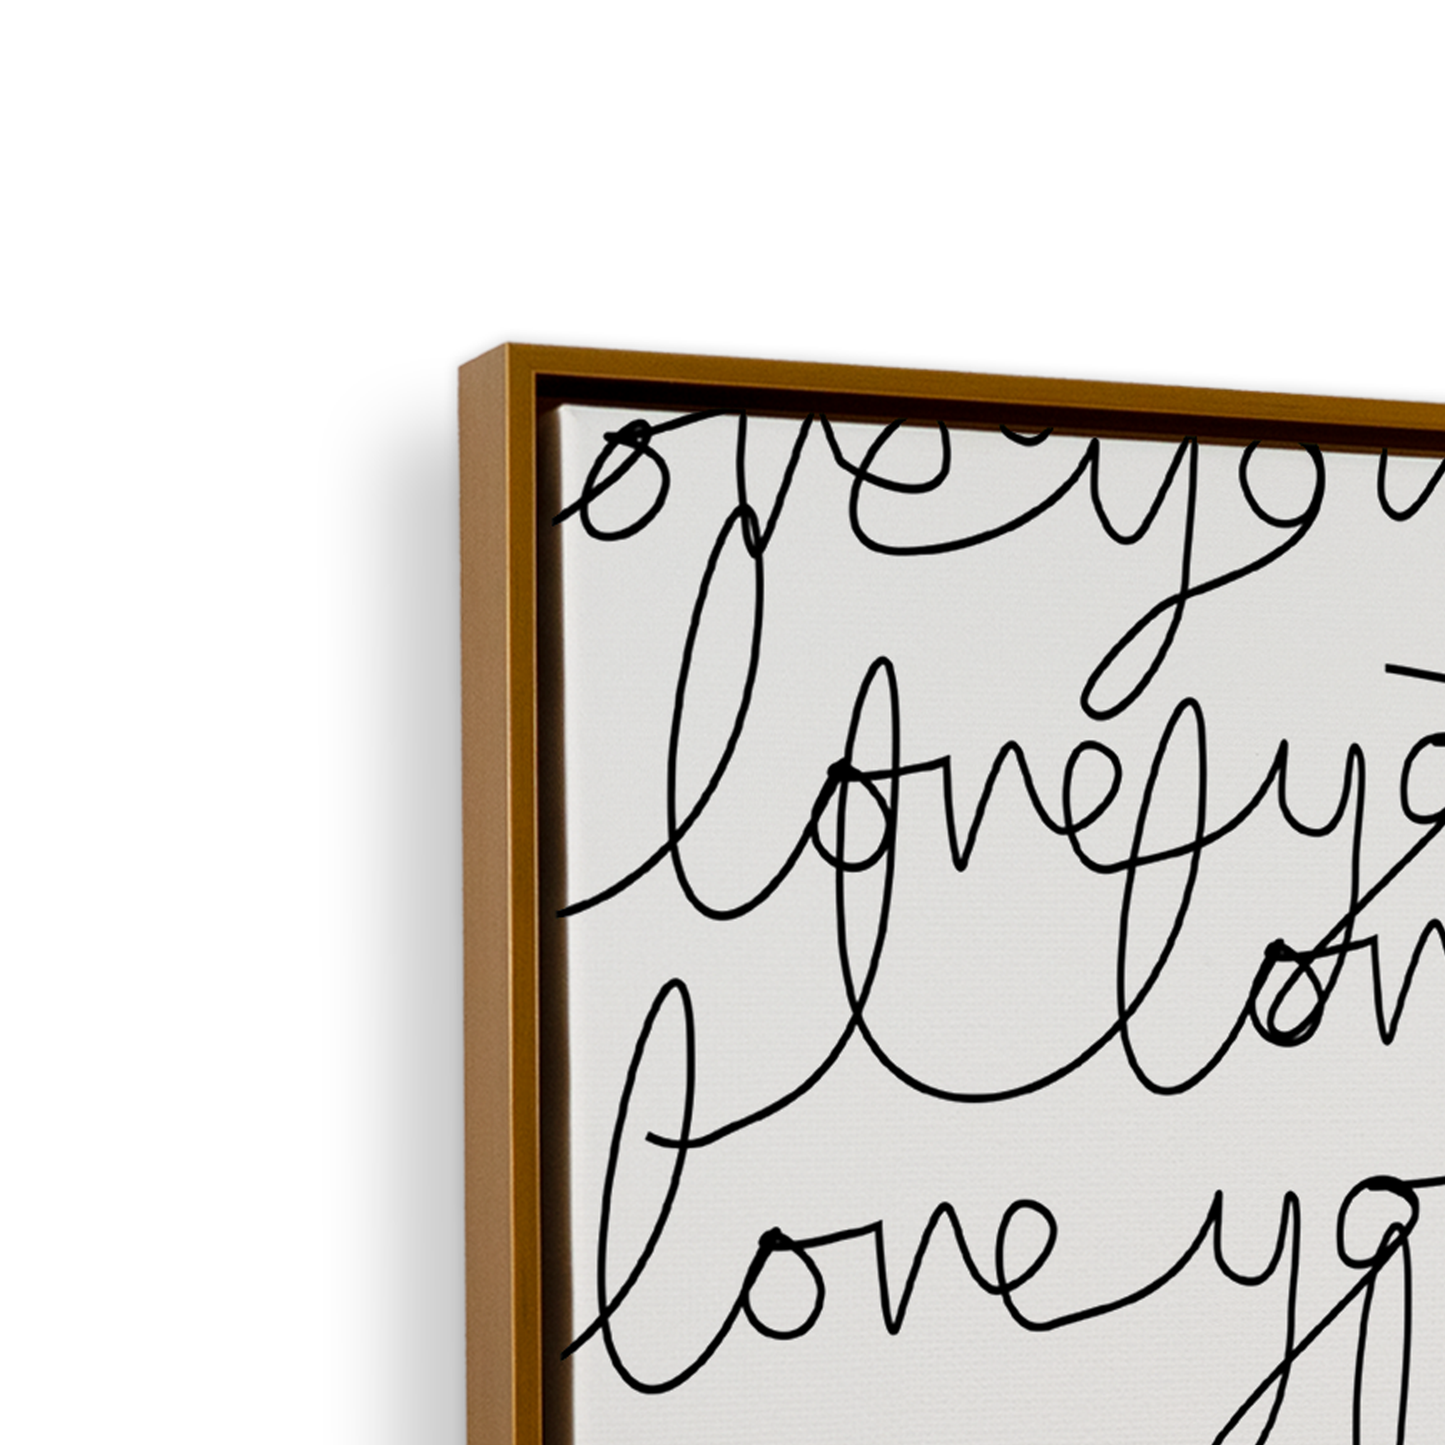 ove you
love yo
lov
love yo